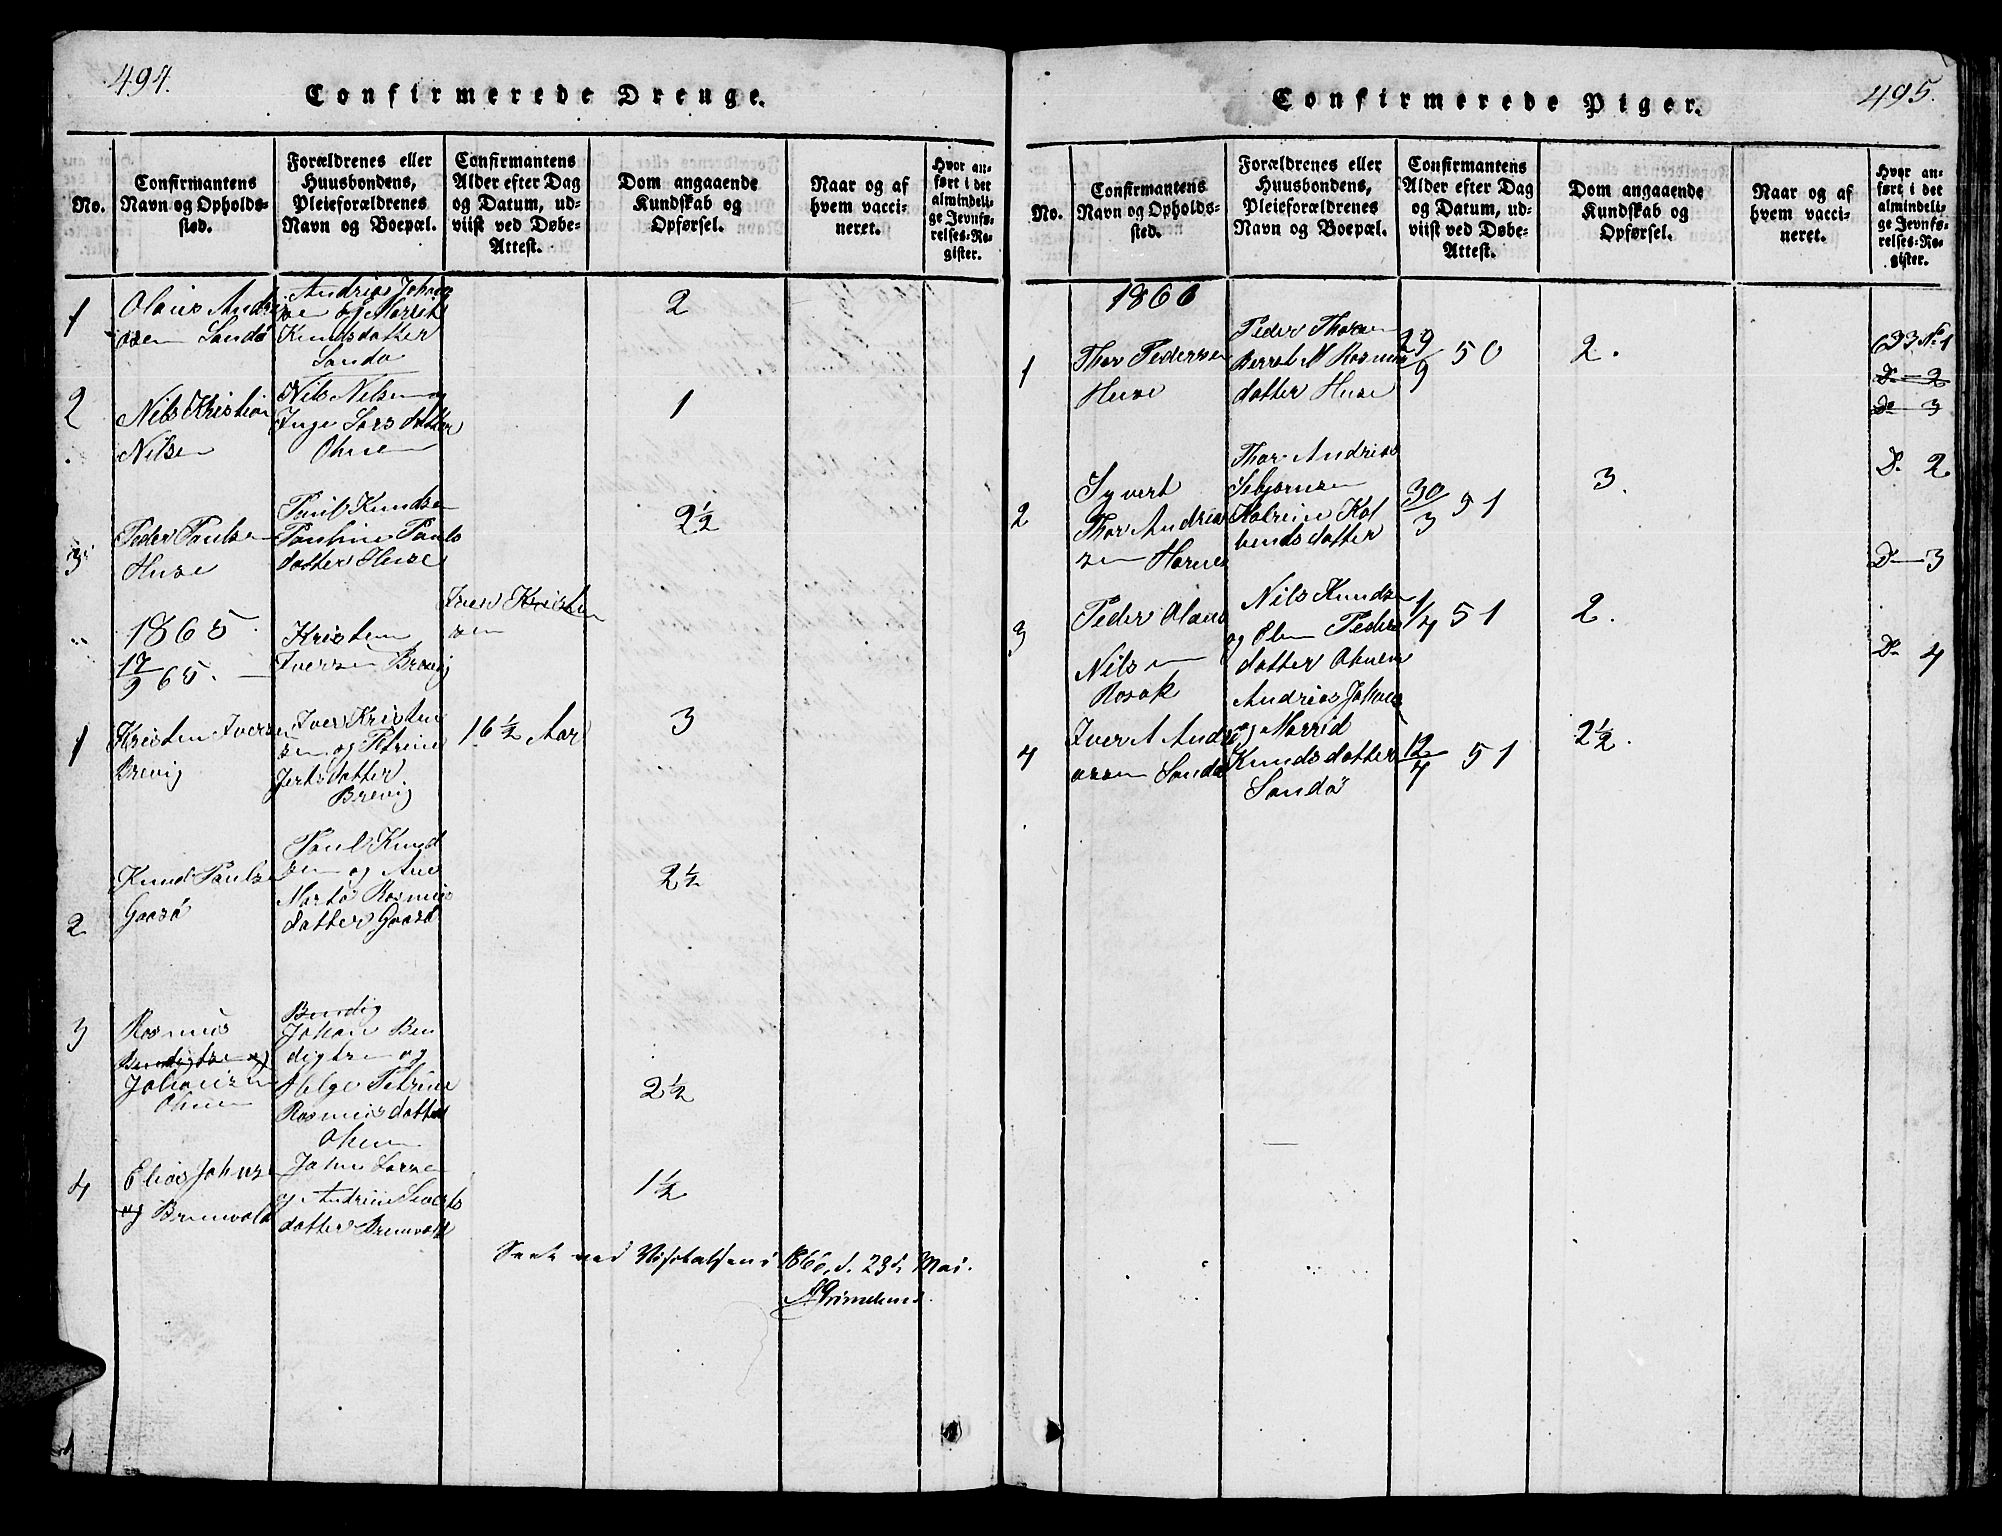 494.
Confirmerede Drenge.
No.
Confirmantens
Navn og Opholds-
sted.
Forældrenes eller
Huusbondens,
Pleieforældrenes
Navn og Boepæl.
Confirmantens
Alder efter Dag
og Datum, ud-
viist ved Døbe-
Attest.
Dom angaaende
Kundskab og
Opførsel.
Naar og af
hvem vacci-
neret.
Hvor an-
ført i det
almindeli-
ge Jevnfø-
relses-Re-
gister.
1
Olaus Andri
asen Sandø
Andrias Johan
sen og Marrit
Knudsdatter
Sandø
2
2
Nils Kristian
Nilsen
Nils Nilsen og
Inge Larsdatter
Ohnen
1
3
Peder Paulsen
Huse
Paul Knudsen
Pauline Pauls
datter Huse
2½
1865
17/9 65.
Kristen
Iversen Brevig
Iver Kristen
sen
1
Kristen Iversen
Brevig
Iver Kristen
sen og Petrine
Jertsdatter
Brevig
16½ Aar
3
2
Knud Paulsen
Gaasø
Paul Knud
sen og Ane
Marta Rasmus
datter Gaasø
2½
3
Rasmus
Bendigtsen og
Johansen
Ohnen
Bendig
Johan Ben
digtsen og
Helge Petrine
Rasmusdatter
Ohnen
2½
4
Elias Johnsen
og Brenvold
John Larsen
og Andrine Siverts
datter Brenvold
1½
Seet ved Visitatsen i 1866, d. 23de Mai.
495.
Confirmerede Piger.
No.
Confirmantens
Navn og Opholds-
sted.
Forældrenes eller
Huusbondens,
Pleieforældrenes
Navn og Boepæl.
Confirmantens
Alder efter Dag
og Datum, ud-
viist ved Døbe-
Attest.
Dom angaaende
Kundskab og
Opførsel.
Naar og af
hvem vacci-
neret.
Hvor an-
ført i det
almindeli-
ge Jevnfø-
relses-Re-
gister.
1866
1
Thor Pedersen
Huse
Peder Thorsen
Berret M Rasmus
datter Huse
29/9 50
2.
633 No 1
Do 2
Do 3
2
Syvert
Thor Andrias
sen Harnes
Thor Andrias
Katrine Kol
bendsdatter
30/3 51
3.
Do 2
Do 3
3
Peder Olaus
Nilsen
Rosok
Nils Knudsen
og Elen Peders
datter Ohnen
1/4 51
2.
Do 4
4
Iver A Andri
asen Sandø
Andrias Johan
og Marrid
Knudsdatter
Sandø
12/4 51
2½.